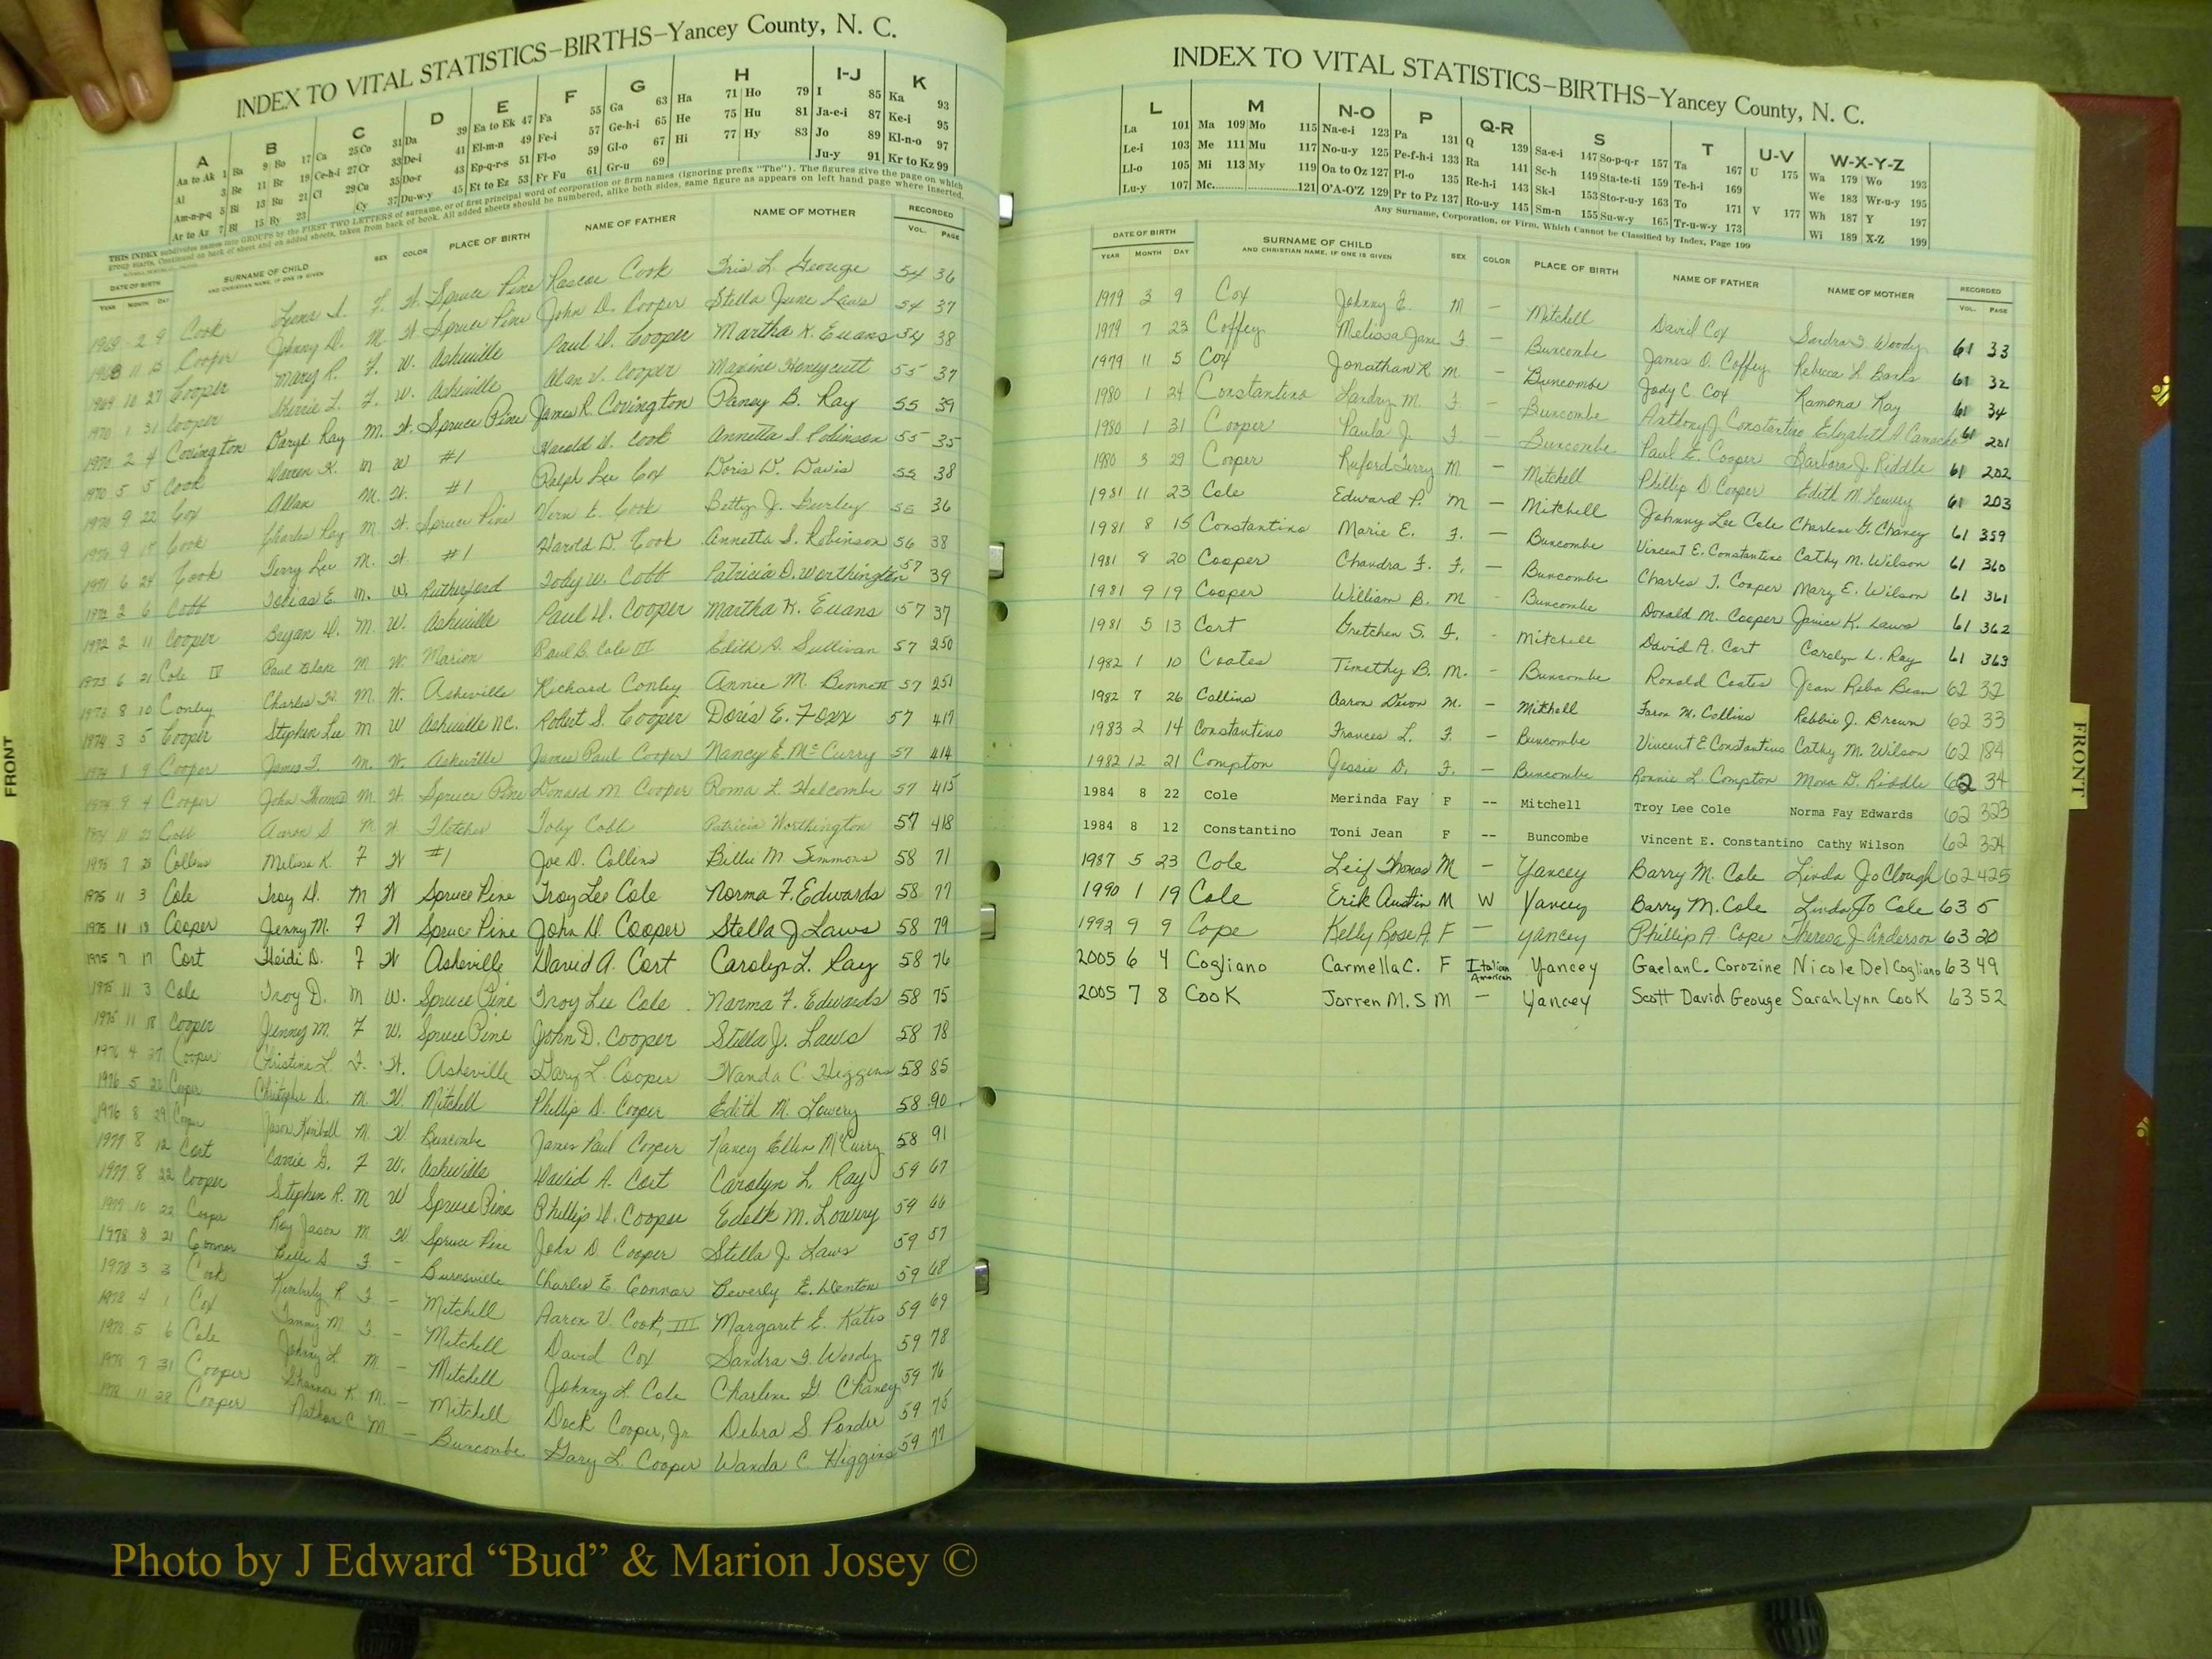 INDEX TO VITAL STATISTICS—BIRTHS—Yancey County, N. C.
A B C D E F G H I-J K
Aa to Ak 1 Ba 9 Bo 17 Ca 25 Co 31 Da 39 Ea to Ek 47 Fa 55 Ga 63 Ha 71 Ho 79 I 85 Ka 93
Al 3 Be 11 Br 19 Ce-h-i 27 Cr 33 De-i 41 El-m-n 49 Fe-i 57 Ge-h-i 65 He 75 Hu 81 Ja-e-i 87 Ke-i 95
Am-n-p-q 5 Bi 13 Bu 21 Cl 29 Cu 35 Do-r 43 Ep-q-r-s 51 Fl-o 59 Gl-o 67 Hi 77 Hy 83 Jo 89 Kl-n-o 97
Ar to Az 7 Bl 15 By 23 Cy 37 Du-w-y 45 Et to Ez 53 Fr Fu 61 Gr-u 69 Ju-y 91 Kr to Kz 99
THIS INDEX subdivides names into GROUPS by the FIRST TWO LETTERS of surname, or of first principal word of corporation or firm names (ignoring prefix "The"). The figures give the page on which
group starts. Continued on back of sheet and on added sheets, taken from back of book. All added sheets should be numbered, alike both sides, same figure as appears on left hand page where inserted.
DATE OF BIRTH SURNAME OF CHILD SEX COLOR PLACE OF BIRTH NAME OF FATHER NAME OF MOTHER RECORDED
YEAR MONTH DAY AND CHRISTIAN NAME, IF ONE IS GIVEN VOL. PAGE
1969 2 9 Cook Leona S. F. W. Spruce Pine Roscoe Cook Iris L. George 54 36
11 Cooper Johnny D. M. W. Spruce Pine John D. Cooper Stella June Laws 54 37
1969 10 27 Cooper Mary R. F. W. Asheville Paul D. Cooper Martha K. Evans 54 38
1970 1 31 Cooper Sherrie L. F. W. Asheville Alan V. Cooper Maxine Honeycutt 55 37
1970 2 4 Covington Daryl Ray M. W. Spruce Pine James R. Covington Pansy B. Ray 55 39
1970 5 5 Cook K. M W #1 Harold D. Cook Annetta S. Robinson 55 35
1970 9 22 Cox Allan M. W. #1 Ralph Lee Cox Doris D. Davis 55 38
9 17 Cook Charles Ray M. W. Spruce Pine Vern E. Cook Betty J. 36
1971 6 24 Cook Terry Lee M. W. #1 Harold D. Cook Annetta S. Robinson 56 38
1972 2 6 Cobb Tobias E. M. W. Rutherford Toby W. Cobb Patricia D. Worthington 57 39
1972 2 11 Cooper Bryan D. M. W. Asheville Paul D. Cooper Martha K. Evans 57 37
1973 6 21 Cole IV Paul Blake M W. Marion Paul B. Cole III Edith A. Sullivan 57 250
1973 8 10 Conley Charles W. M. W. Asheville Richard Conley Annie M. Bennett 57 251
1974 3 5 Cooper Stephen Lee M W Asheville NC. Robert S. Cooper Doris E. Foxx 57 417
1974 1 9 Cooper James T. M. W. Asheville James Paul Cooper Nancy E. McCurry 57 414
1974 9 4 Cooper John Thomas M. W. Spruce Pine Donald M Cooper Roma L. Holcombe 57 415
1974 11 22 Cobb Aaron S. M W. Fletcher Toby Cobb Patricia Worthington 57 418
1975 7 28 Collins Melissa K. F W #1 Joe D. Collins Billie M. Simmons 58 71
1975 11 3 Cole Troy D. M W Spruce Pine Troy Lee Cole Norma F. Edwards 58 77
1975 11 18 Cooper Jenny M. F W Spruce Pine John D. Cooper Stella J Laws 58 79
1975 7 17 Cort Heidi D. F W Asheville David A. Cort Carolyn L. Ray 58 76
1975 11 3 Cole Troy D. M W. Spruce Pine Troy Lee Cole Norma F. Edwards 58 75
1975 11 18 Cooper Jenny M. F W. Spruce Pine John D. Cooper Stella J. Laws 58 78
1976 4 27 Cooper Christina L. F. W. Asheville Gary L. Cooper Wanda C. Higgins 58 85
1976 5 22 Cooper Christopher D. M. W. Mitchell Phillip D. Cooper Edith M. Lowery 58 90
1976 8 29 Cooper Jason Kimball M. W. Buncombe James Paul Cooper Nancy Ellen McCurry 58 91
1977 8 12 Cort Carrie G. F W. Asheville David A. Cort Carolyn L. Ray 59 67
1977 8 22 Cooper Stephen R. M W Spruce Pine Phillip D. Cooper Edith M. Lowery 59 66
1977 10 22 Cooper Roy Jason M W Spruce Pine John D. Cooper Stella J. Laws 59 57
1978 8 21 Connor S F - Burnsville Charles E Connor Beverly E. Denton 59 68
1978 3 3 Cook Kimberly R F - Mitchell Aaron V. Cook, III Margaret E. Kates 59 69
1978 4 1 Cox Tammy M. F. - Mitchell David Cox Sandra F. Woody 59 78
1978 5 6 Cole Johnny L. M - Mitchell Johnny L. Cole Charlene G. Chaney 59 76
1978 7 31 Cooper Shannon K. M. - Mitchell Dock Cooper, Jr. Debra S. Ponder 59 75
1978 11 28 Cooper Nathan C. M - Buncombe Gary L. Cooper Wanda C. Higgins 59 77
FRONT
INDEX TO VITAL STATISTICS—BIRTHS—Yancey County, N. C.
L M N-O P Q-R S T U-V W-X-Y-Z
La 101 Ma 109 Mo 115 Na-e-i 123 Pa 131 Q 139 Sa-e-i 147 So-p-q-r 157 Ta 167 U 175 Wa 179 Wo 193
Le-i 103 Me 111 Mu 117 No-u-y 125 Pe-f-h-i 133 Ra 141 Sc-h 149 Sta-te-ti 159 Te-h-i 169 We 183 Wr-u-y 195
Ll-o 105 Mi 113 My 119 Oa to Oz 127 Pl-o 135 Re-h-i 143 Sk-l 153 Sto-r-u-y 163 To 171 V 177 Wh 187 Y 197
Lu-y 107 Mc 121 O'A-O'Z 129 Pr to Pz 137 Ro-u-y 145 Sm-n 155 Su-w-y 165 Tr-u-w-y 173 Wi 189 X-Z 199
Any Surname, Corporation, or Firm, Which Cannot be Classified by Index, Page 199
DATE OF BIRTH SURNAME OF CHILD SEX COLOR PLACE OF BIRTH NAME OF FATHER NAME OF MOTHER RECORDED
YEAR MONTH DAY AND CHRISTIAN NAME, IF ONE IS GIVEN VOL. PAGE
1979 3 9 Cox Johnny E. M — Mitchell David Cox Sandra F. Woody 61 33
1979 7 23 Coffey Melissa Jane F — Buncombe James O. Coffey Rebecca L Banks 61 32
1979 11 5 Cox Jonathan R M — Buncombe Jody C. Cox Ramona Ray 61 34
1980 1 24 Constantino Landry M. F — Buncombe Anthony J. Constantino Elizabeth A. Camacho 61 201
1980 1 31 Cooper Paula J. F — Buncombe Paul E. Cooper Barbara J. Riddle 61 202
1980 3 29 Cooper Ruford Terry M — Mitchell Phillip D Cooper Edith M. Lowery 61 203
1981 11 23 Cole Edward P. M — Mitchell Johnny Lee Cole Charlene G. Chaney 61 359
1981 8 15 Constantino Marie E. F. — Buncombe Vincent E. Constantino Cathy M. Wilson 61 360
1981 8 20 Cooper Chandra F. F. — Buncombe Charles T. Cooper Mary E. Wilson 61 361
1981 9 19 Cooper William B. M - Buncombe Donald M. Cooper Janice K. Laws 61 362
1981 5 13 Cort Gretchen S. F. - Mitchell David A. Cort Carolyn L. Ray 61 363
1982 1 10 Coates Timothy B. M. - Buncombe Ronald Coates Jean Reba Bean 62 32
1982 7 26 Collins Aaron Devon M. - Mitchell Faron M. Collins Robbie J. Brown 62 33
1983 2 14 Constantino Frances L. F. — Buncombe Vincent E Constantino Cathy M. Wilson 62 184
1982 12 21 Compton Jessie D. F. — Buncombe Ronnie L. Compton Mona D. Riddle 62 34
1984 8 22 Cole Merinda Fay F -- Mitchell Troy Lee Cole Norma Fay Edwards 62 323
1984 8 12 Constantino Toni Jean F -- Buncombe Vincent E. Constantino Cathy Wilson 62 324
1987 5 23 Cole Leif Thomas M — Yancey Barry M. Cole Linda Jo Clough 62 425
1990 1 19 Cole Erik Austin M W Yancey Barry M. Cole Linda Jo Cole 63 5
1992 9 9 Cope Kelly Rose A. F — Yancey Phillip A. Cope Theresa J. Anderson 63 20
2005 6 4 Cogliano Carmella C. F Italian American Yancey Gaelan C. Corozine Nicole Del Cogliano 63 49
2005 7 8 Cook Jorren M. S M — Yancey Scott David George Sarah Lynn Cook 63 52
FRONT
Photo by J Edward “Bud” & Marion Josey ©